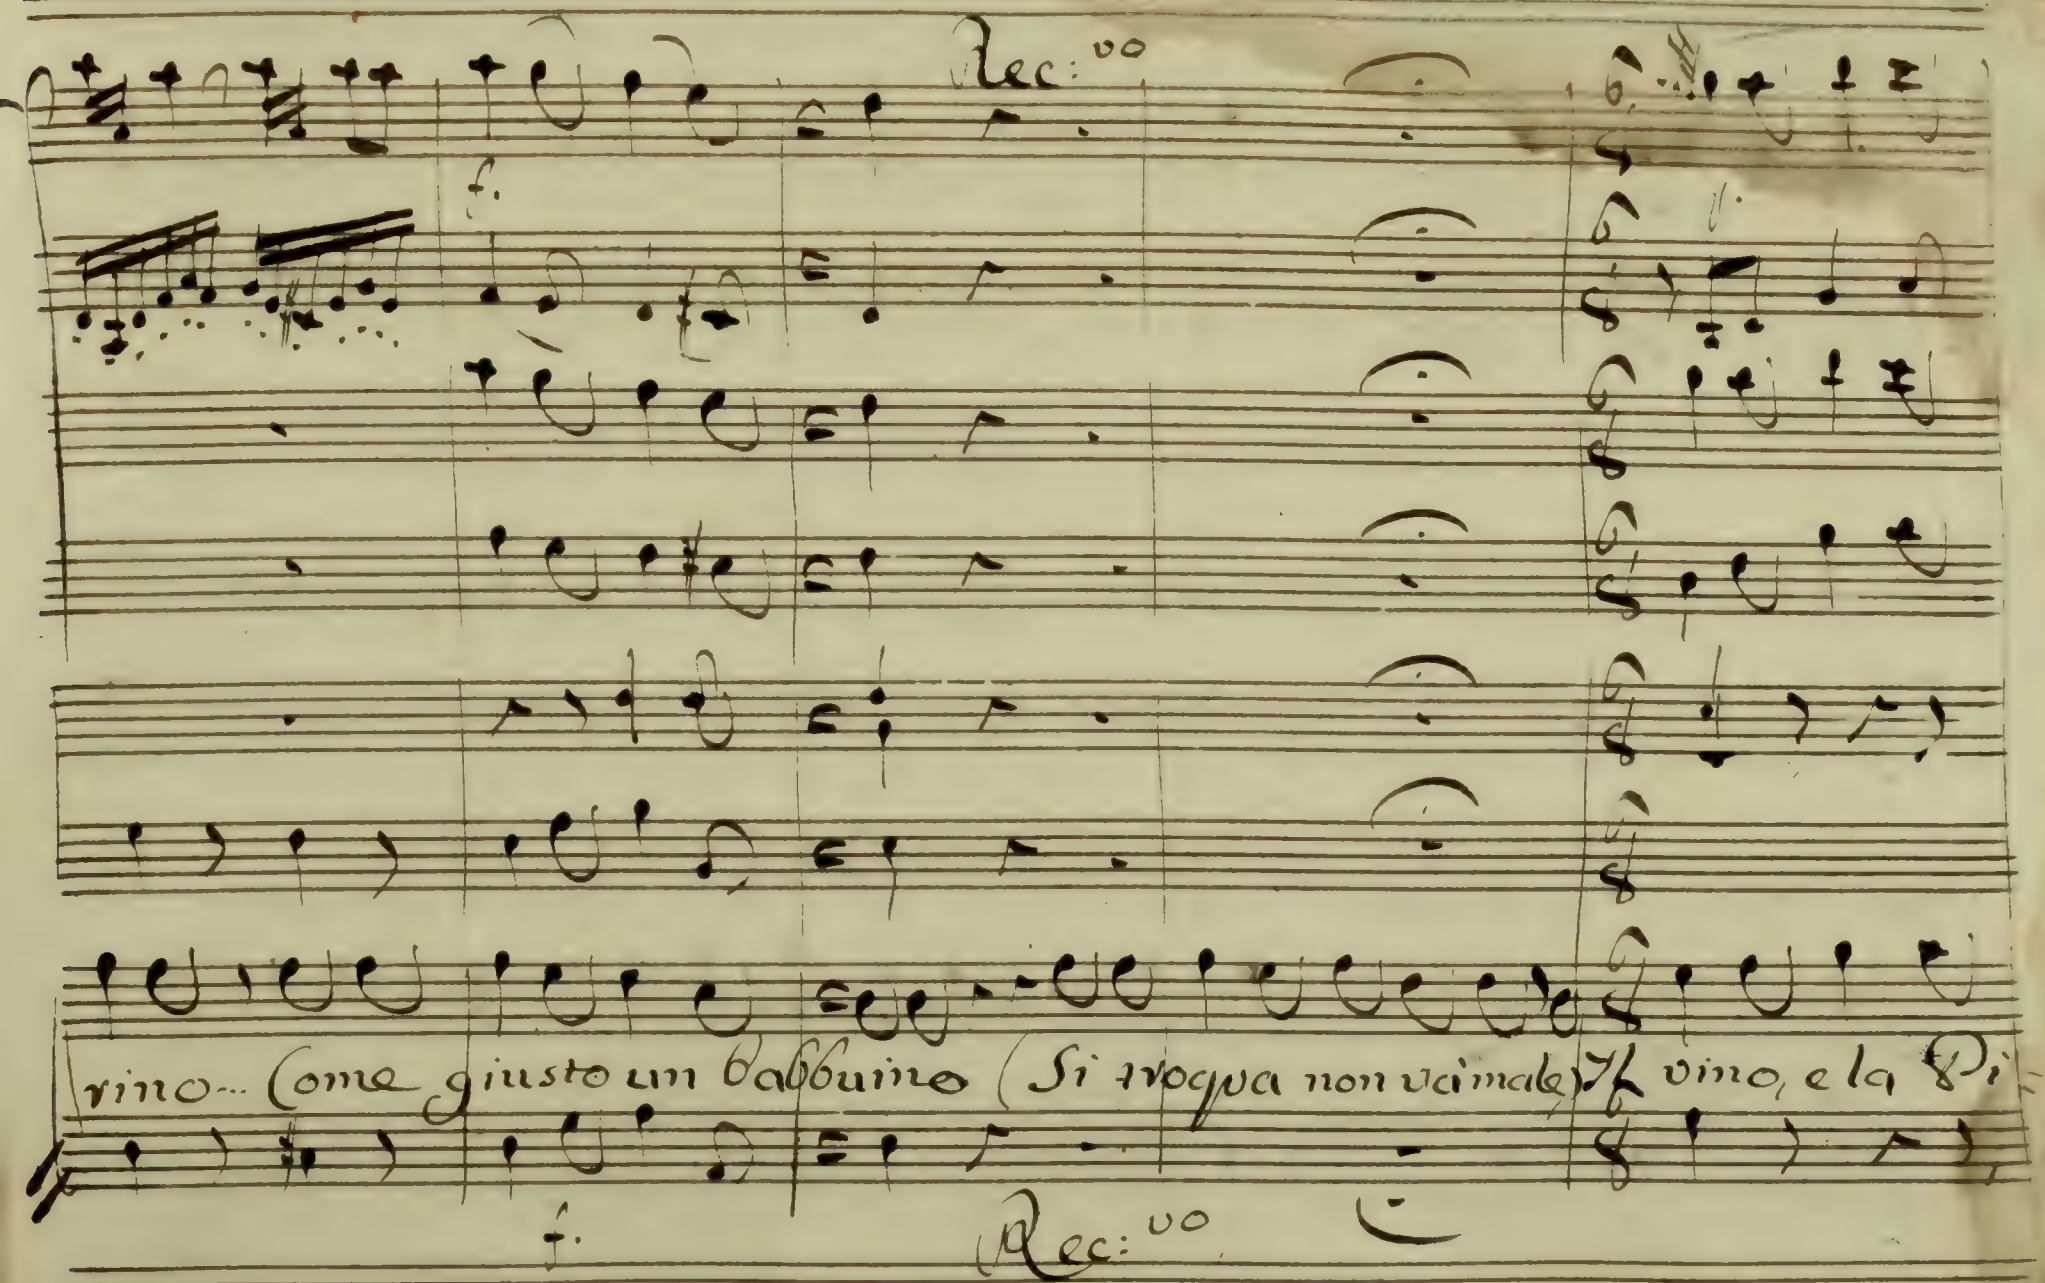 Rec: vo
f.
rino... Come giusto un babbuino (Si troqua non vcimale) Il vino, e la Pi
f.
Rec: vo